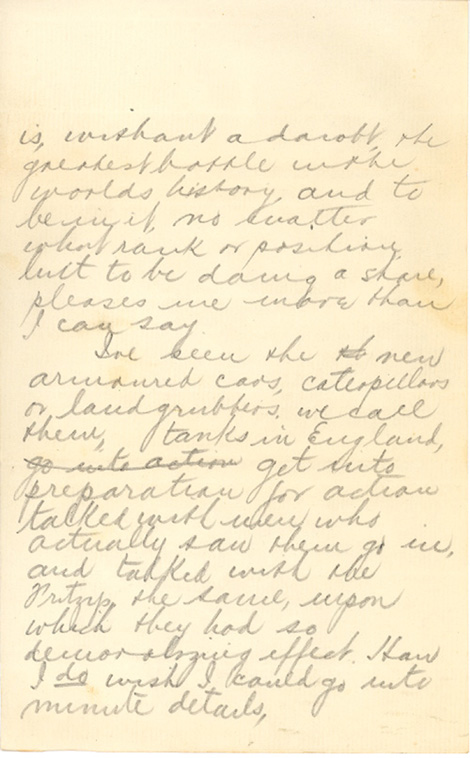 is, without a doubt, the
greatest battle in the
worlds history, and to
be in it, no matter
what rank or position,
but to be doing a share,
pleases me more than
I can say.
I've seen the the new
armoured cars, caterpillars
or landgrubbers. we call
them, tanks in England,
go into action get into
preparation for action
talked with men who
actually saw them go in,
and talked with the
the same, upon
which they had so
demoralizing effect. How
I do wish I could go into
minute details,